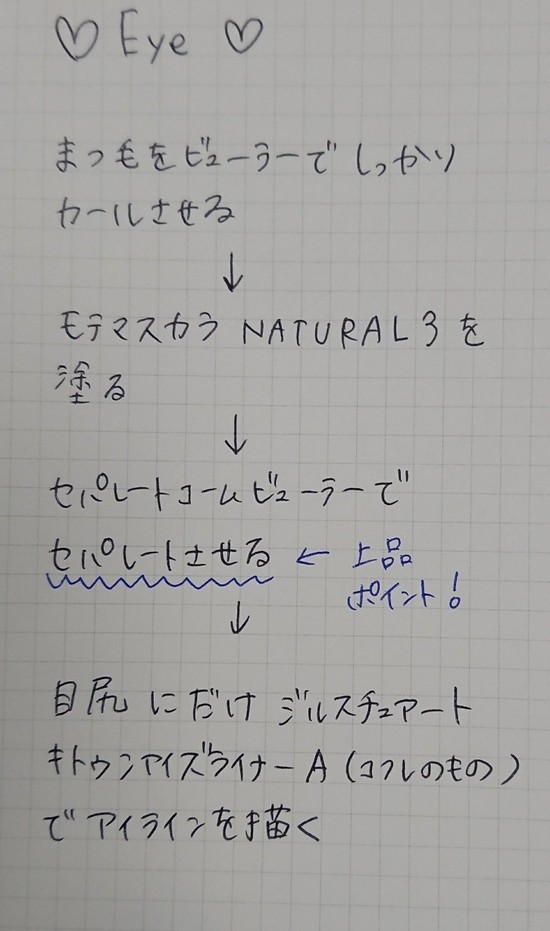 ♡ Eye ♡
まつ毛をビューラーでしっかり
カールさせる
↓
モテマスカラ NATURAL 3 を
塗る
↓
セパレートコームビューラーで
セパレートさせる ← 上品
ポイント!
↓
目尻にだけ ジルスチュアート
キトゥンアイズライナーA (コフレのもの)
でアイラインを描く